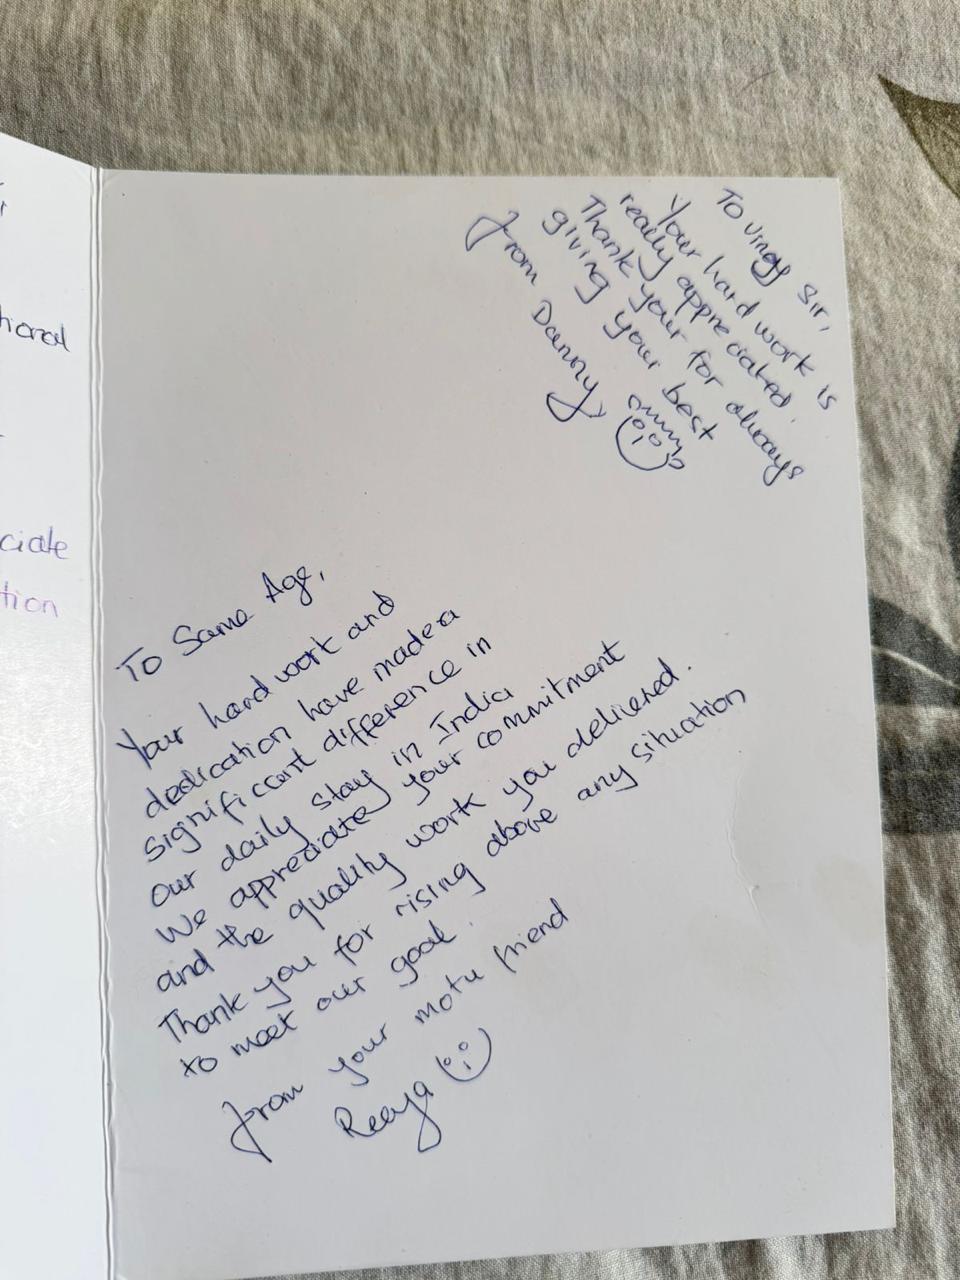 tional
ciate
tion
To vingy sir,
Your hard work is
really appreciated.
Thank your for always
giving your best
from Danny
To Same Age,
Your hard work and
dedication have made a
significant difference in
our daily stay in India
We appreciate your commitment
and the quality work you delivered.
Thank you for rising above any situation
to meet our goal.
from your motu friend
Reeya